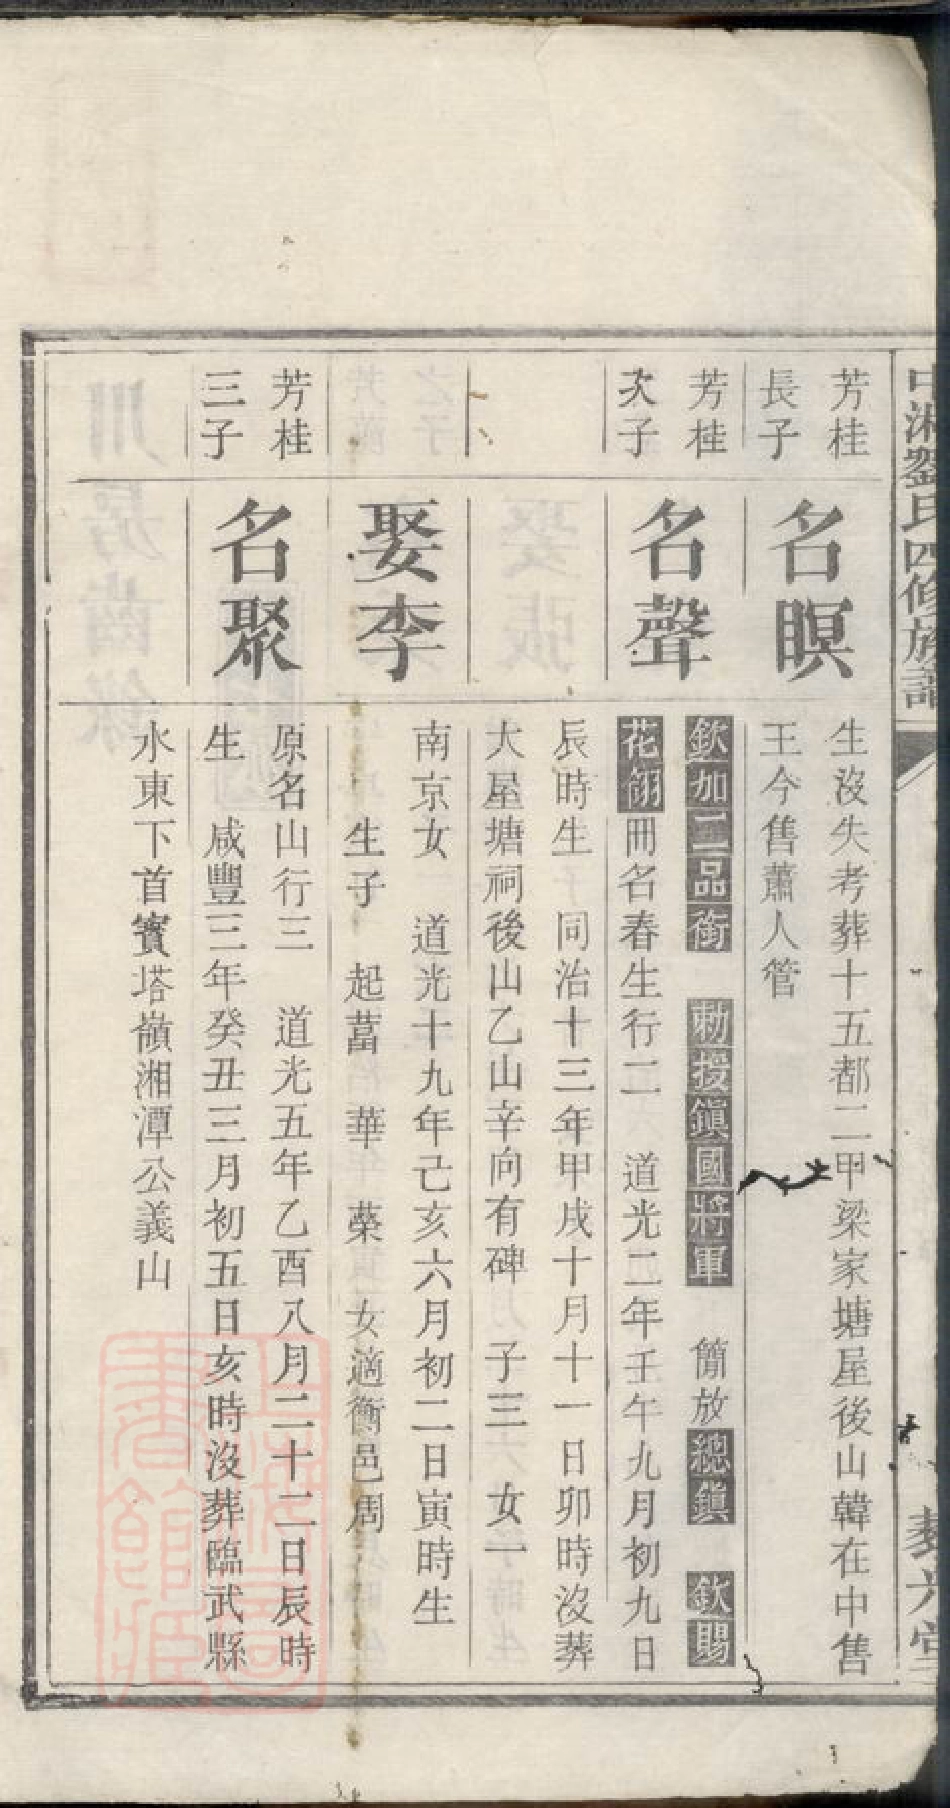 中湘劉氏四修族譜
藜光堂
芳桂
長子
名瞑
生沒失考葬十五都二甲梁家塘屋後山韓在中售
王今售蕭人管
芳桂
次子
名聲
欽加二品銜 勅授鎮國將軍 簡放總鎮 欽賜
花翎冊名春生行二 道光二年壬午九月初九日
辰時生 同治十三年甲戌十月十一日卯時沒葬
大屋塘祠後山乙山辛向有碑 子三 女一
娶李
南京女 道光十九年己亥六月初二日寅時生
生子 起蒚 華 蘃 女適衡邑周
芳桂
三子
名聚
原名山行三 道光五年乙酉八月二十二日辰時
生 咸豐三年癸丑三月初五日亥時沒葬臨武縣
水東下首寳塔嶺湘潭公義山
上海圖書館藏